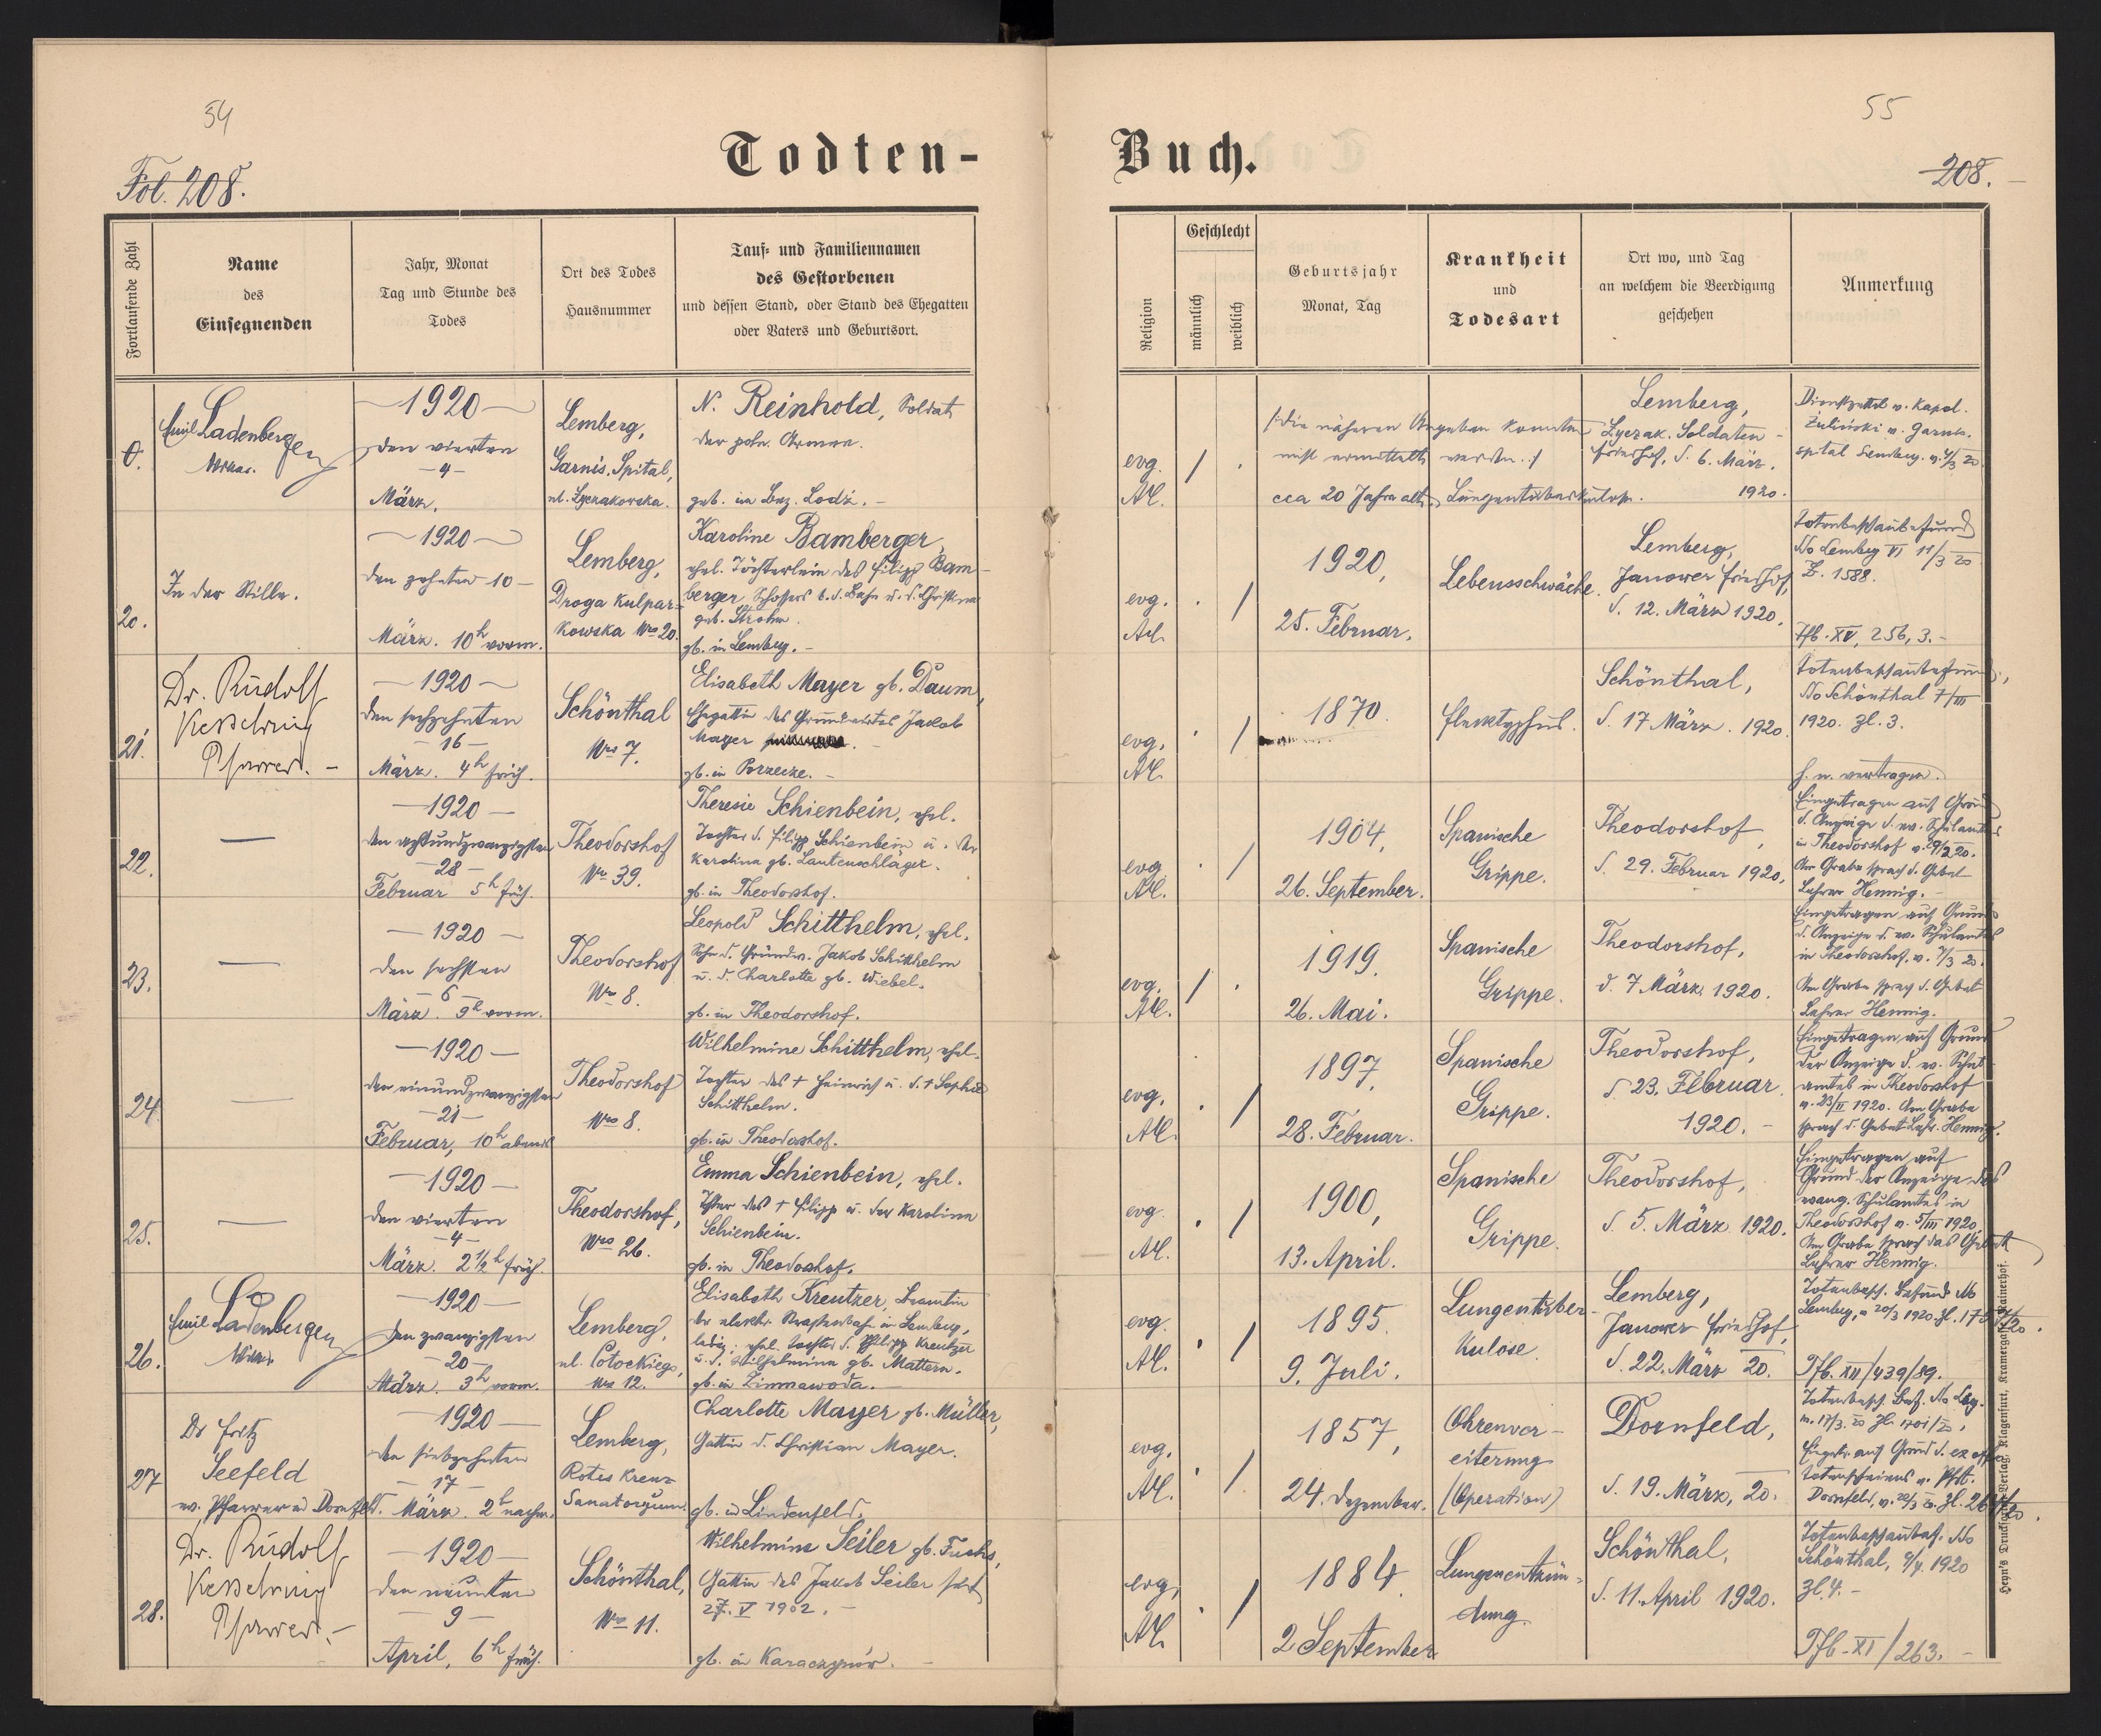 54
Fol. 208.
Todten-
Fortlaufende Zahl
Name
des
Einsegnenden
Jahr, Monat
Tag und Stunde des
Todes
Ort des Todes
Hausnummer
Tauf- und Familiennamen
des Gestorbenen
und dessen Stand, oder Stand des Ehegatten
oder Vaters und Geburtsort.
Emil Ladenberger
Vikar.
—1920—
den vierten
—4—
März.
Lemberg,
Garnis. Spital,
ul. Lyczakowska.
N. Reinhold, Soldat
der poln. Armee.
geb. im Bez. Lodz. –
20.
In der Stille.
—1920—
den zehnten 10—
März. 10h vorm.
Lemberg,
Droga Kulpar-
kowska Nro 20.
Karoline Bamberger,
ehel. Töchterlein des Filipp Bam-
berger, Schlossers b. d. Bahn u. d. Christine
geb. Strohm.
gb. in Lemberg. –
21.
Dr. Rudolf
Kesselring
Pfarrer. –
—1920—
den sechzehnten
—16—
März. 4h früh.
Schönthal
Nro 7.
Elisabeth Mayer gb. Daum,
Ehegattin des Grundwirtes Jakob
Mayer
gb. in Porzecze. –
22.
—
—1920—
den achtundzwanzigsten
—28—
Februar 5h früh.
Theodorshof
Nro 39.
Theresie Schienbein, ehel.
Tochter d. Filipp Schienbein u. der
Karolina gb. Lautenschläger.
gb. in Theodorshof.
23.
—
—1920—
den sechsten
—6—
März. 9h vorm.
Theodorshof
Nro 8.
Leopold Schitthelm, ehel.
Sohn d. Grundw. Jakob Schitthelm
u. d. Charlotte gb. Wiebel.
gb. in Theodorshof.
24
—
—1920—
den einundzwanzigsten
—21—
Februar, 10h abends
Theodorshof
Nro 8.
Wilhelmine Schitthelm, ehel.
Tochter des † Heinrich u. d. † Sophie
Schitthelm.
gb. in Theodorshof.
25.
—
—1920—
den vierten
—4—
März. 2½h früh.
Theodorshof,
Nro 26.
Emma Schienbein, ehel.
Tochter des † Filipp u. der Karolina
Schienbein.
gb. in Theodorshof.
26.
Emil Ladenberger
Vikar
—1920—
den zwanzigsten
—20—
März. 3h vorm.
Lemberg,
ul. Potockiego,
Nro 12.
Elisabeth Kreutzer, Beamtin
der elektr. Strassenbahn in Lemberg,
ledig, ehel. Tochter d. Philipp Kreutzer
u. d. Wilhelmina gb. Mattern.
gb. in Zimnawoda. –
27
Dr Fritz
Seefeld
ev. Pfarrer in Dornfeld.
—1920—
den siebzehnten
—17—
März. 2h nachm.
Lemberg,
Rotes Kreuz
Sanatorjum.
Charlotte Mayer gb. Müller,
Gattin d. Christian Mayer.
gb. in Lindenfeld.
28.
Dr. Rudolf
Kesselring
Pfarrer. –
—1920—
den neunten
—9—
April, 6h früh.
Schönthal,
Nro 11.
Wilhelmine Seiler gb. Fuchs,
Gattin des Jakob Seiler seit
27. V 1902. –
gb. in Karaczynów. –
55
208.
Buch.
Religion
Geschlecht
männlich
weiblich
Geburtsjahr
Monat, Tag
Krankheit
und
Todesart
Ort wo, und Tag
an welchem die Beerdigung
geschehen
Anmerkung
evg.
AC.
/: die näheren Angaben konnten
nicht ermittelt werden. :/
cca 20 Jahre alt. Lungentuberkulose.
Lemberg,
Lyczak. Soldaten-
friedhof, d. 6. März.
1920.
v. Kapel.
Żuliński v. Garnis.
spital Lemberg. v. 4/3 20
evg.
AC.
1920,
25. Februar.
Lebensschwäche.
Lemberg,
Janower Friedhof,
d. 12. März 1920.
Totenbeschaubefund
No Lemberg VI 11/3 20
Z. 1588.
Pfb. XV, 256, 3. –
evg.
AC.
1870.
Flecktyphus.
Schönthal,
d. 17 März. 1920.
Totenbeschaubefund
No Schönthal 7/III
1920. Zl. 3.
evg.
AC.
1904,
26. September.
Spanische
Grippe.
Theodorshof,
d. 29. Februar 1920.
Eingetragen auf Grund
d. Anzeige d. ev. Schulamtes
in Theodorshof v. 29/2 20.
Am Grabe sprach d. Gebet
Lehrer Hennig. –
evg.
AC.
1919.
26. Mai.
Spanische
Grippe.
Theodorshof,
d. 7 März 1920.
Eingetragen auf Grund
d. Anzeige d. ev. Schulamtes
in Theodorshof. v. 7/3 20.
Am Grabe sprach d. Gebet
Lehrer Hennig.
evg.
AC.
1897,
28. Februar.
Spanische
Grippe.
Theodorshof,
d. 23. Februar
1920. –
Eingetragen auf Grund
der Anzeige d. ev. Schul-
amtes in Theodorshof
v. 23/II 1920. Am Grabe
sprach d. Gebet Lehr. Hennig.
evg.
AC.
1900,
13. April.
Spanische
Grippe.
Theodorshof,
d. 5. März 1920.
Eingetragen auf
Grund der Anzeige des
evang. Schulamtes in
Theodorshof v. 5/III 1920
Am Grabe sprach das Gebet
Lehrer Hennig.
evg.
AC.
1895.
9. Juli.
Lungentuber-
kulose.
Lemberg,
Janower Friedhof,
d. 22. März 20.
Totenbesch. Befund No
Lemberg, v 20/3 1920. Zl.
Pfb. XII/439/89.
evg.
AC.
1857,
24. Dezember.
Ohrenver-
eiterung
(Operation)
Dornfeld,
d. 19. März, 20.
Totenbesch. Bef. No Lbg.
v. 17/3. 20 Zl. 1701/20,
Eingetr. auf Grund d. ex offo
Totenscheines v. Pfr.
Dornfeld, v. 20/3 20. Zl.
evg,
AC.
1884.
2 September
Lungenentzün-
dung.
Schönthal,
d. 11. April 1920.
Totenbeschaubef. No
Schönthal, 9/4. 1920
Zl. 4. –
Pfb. XI/263. –
Heyn's Drucksorten-Verlag, Klagenfurt, Kramergasse, Rainerhof.